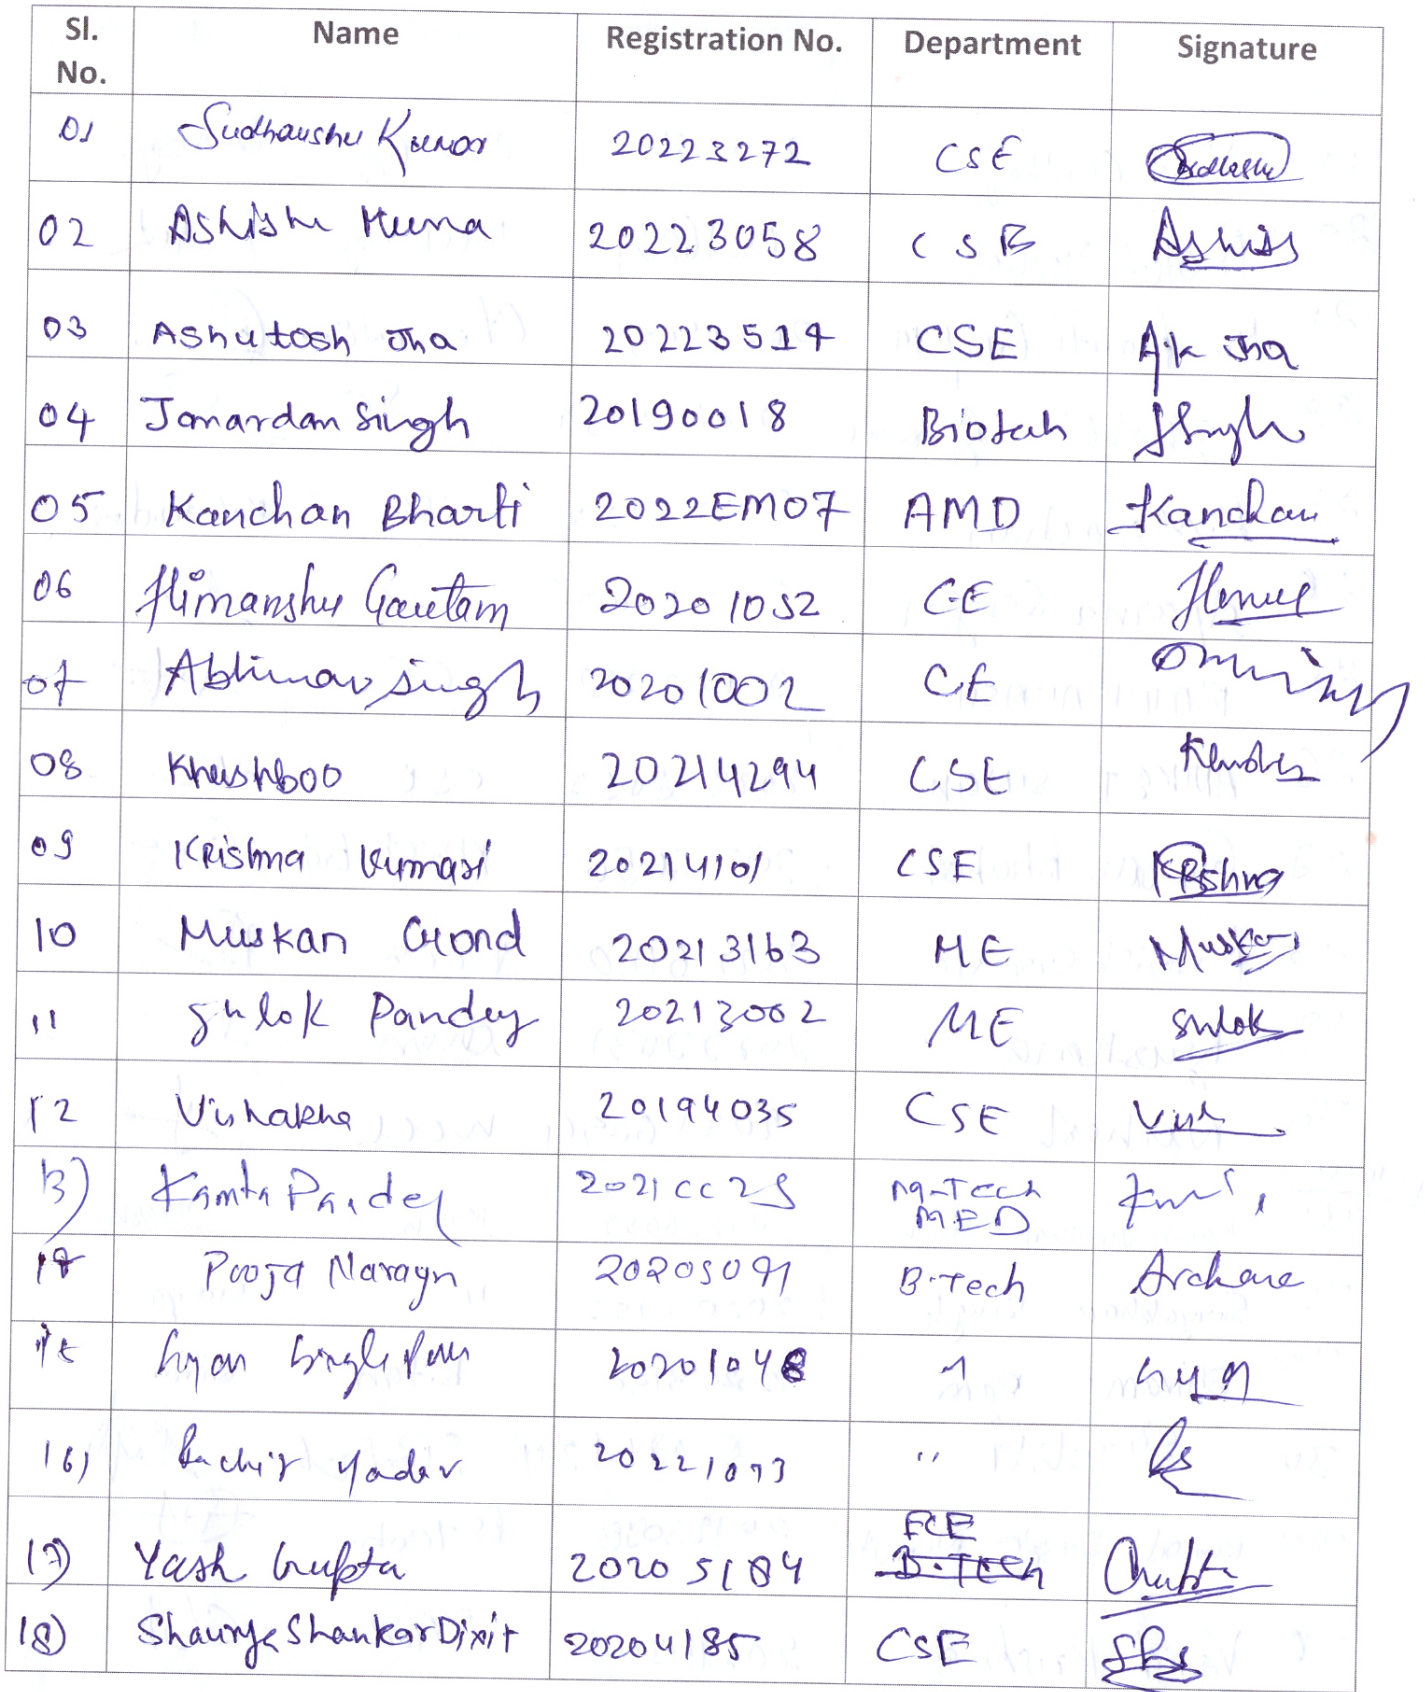 Sl. No. Name Registration No. Department Signature
01 Sudhanshu Kumar 20223272 CSE
02 Ashish Meena 20223058 CSE Ashish
03 Ashutosh Jha 20223514 CSE A.k Jha
04 Janardan Singh 20190018 Biotech JSingh
05 Kanchan Bharti 2022EM07 AMD Kanchan
06 Himanshu Gautam 20201052 C.E
07 Abhinav Singh 20201002 C.E
08 Khushboo 20214294 CSE
09 Krishna Kumari 20214101 CSE Krishna
10 Muskan Gond 20213163 ME Muskan
11 Shlok Pandey 20213002 ME Shlok
12 Vishakha 20194035 CSE Vish
13) Kamta Pandey 2021CC25 M-Tech MED
14 Pooja Narayn 20205091 B.Tech Archane
15 Gyan 20201048 Gyan
16) Ruchir Yadav 20221073 "
17) Yash Gupta 20205184 ECE B.Tech Gupta
18) Shaurya Shankar Dixit 20204185 CSE